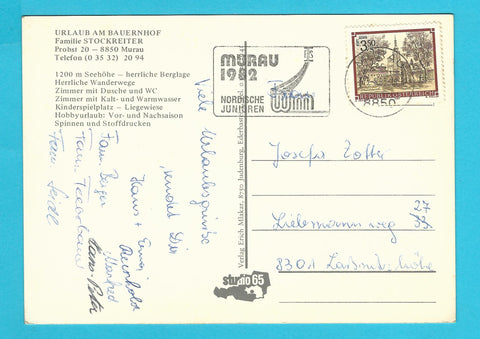 URLAUB AM BAUERNHOF
Familie STOCKREITER
Probst 20 – 8850 Murau
Telefon (0 35 32) 20 94
1200 m Seehöhe – herrliche Berglage
Herrliche Wanderwege
Zimmer mit Dusche und WC
Zimmer mit Kalt- und Warmwasser
Kinderspielplatz – Liegewiese
Hobbyurlaub: Vor- und Nachsaison
Spinnen und Stoffdrucken
Viele Urlaubsgrüße
sendet Dir
Hans +
Reinhold
Manfred
Fam. Berger
Hans-Peter
Fam.
Fam.
Verlag Erich Mlakar, 8750 Judenburg,
studio 65
MURAU
1982
NORDISCHE
JUNIOREN
8850
3.50
REPUBLIK ÖSTERREICH
Josefa
Liebmannweg
8301 Laßnitzhöhe